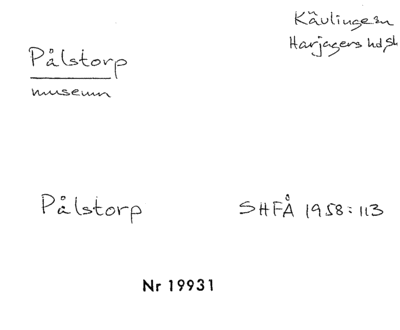 Kävlinge sn
Harjagers hd, Sk
Pålstorp
museum
Pålstorp SHFÅ 1958:113
Nr 19931